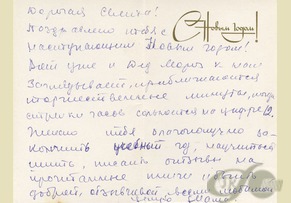 С Новым годом!
Дорогая
Поздравляю тебя с
наступающим Новым годом!
Вот уже и Дед Мороз к нам
заглядывает, приближаются
торжественные минуты, когда
стрелки часов сойдутся на цифре 12.
Желаю тебя благополучно за-
кончить учебный год, научиться
шить, писать отзывы на
прочитанные книги и быть
доброй, отзывчивой, всеми любимой